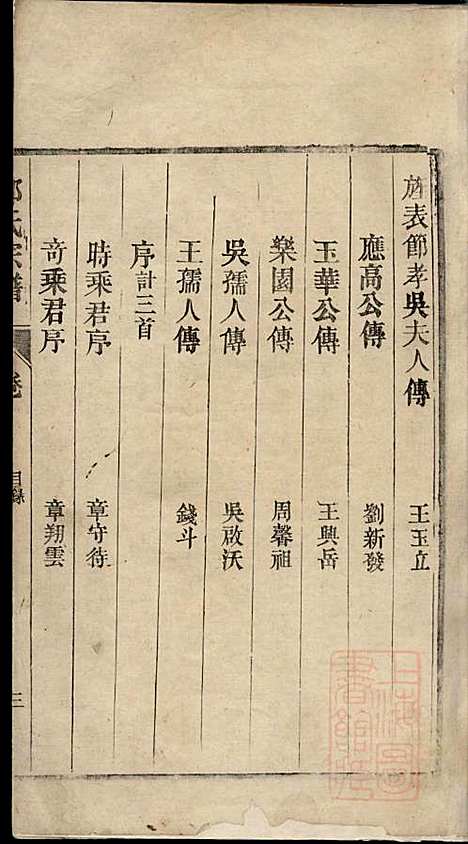 旌表節孝吳夫人傳 王玉立
應高公傳 劉新發
玉華公傳 王興岳
樂園公傳 周馨祖
吳孺人傳 吳啟沃
王孺人傳 錢斗
序計三首
時乘君序 章守待
奇乘君序 章翔雲
氏宗譜 卷 目錄 三
上海圖書館藏